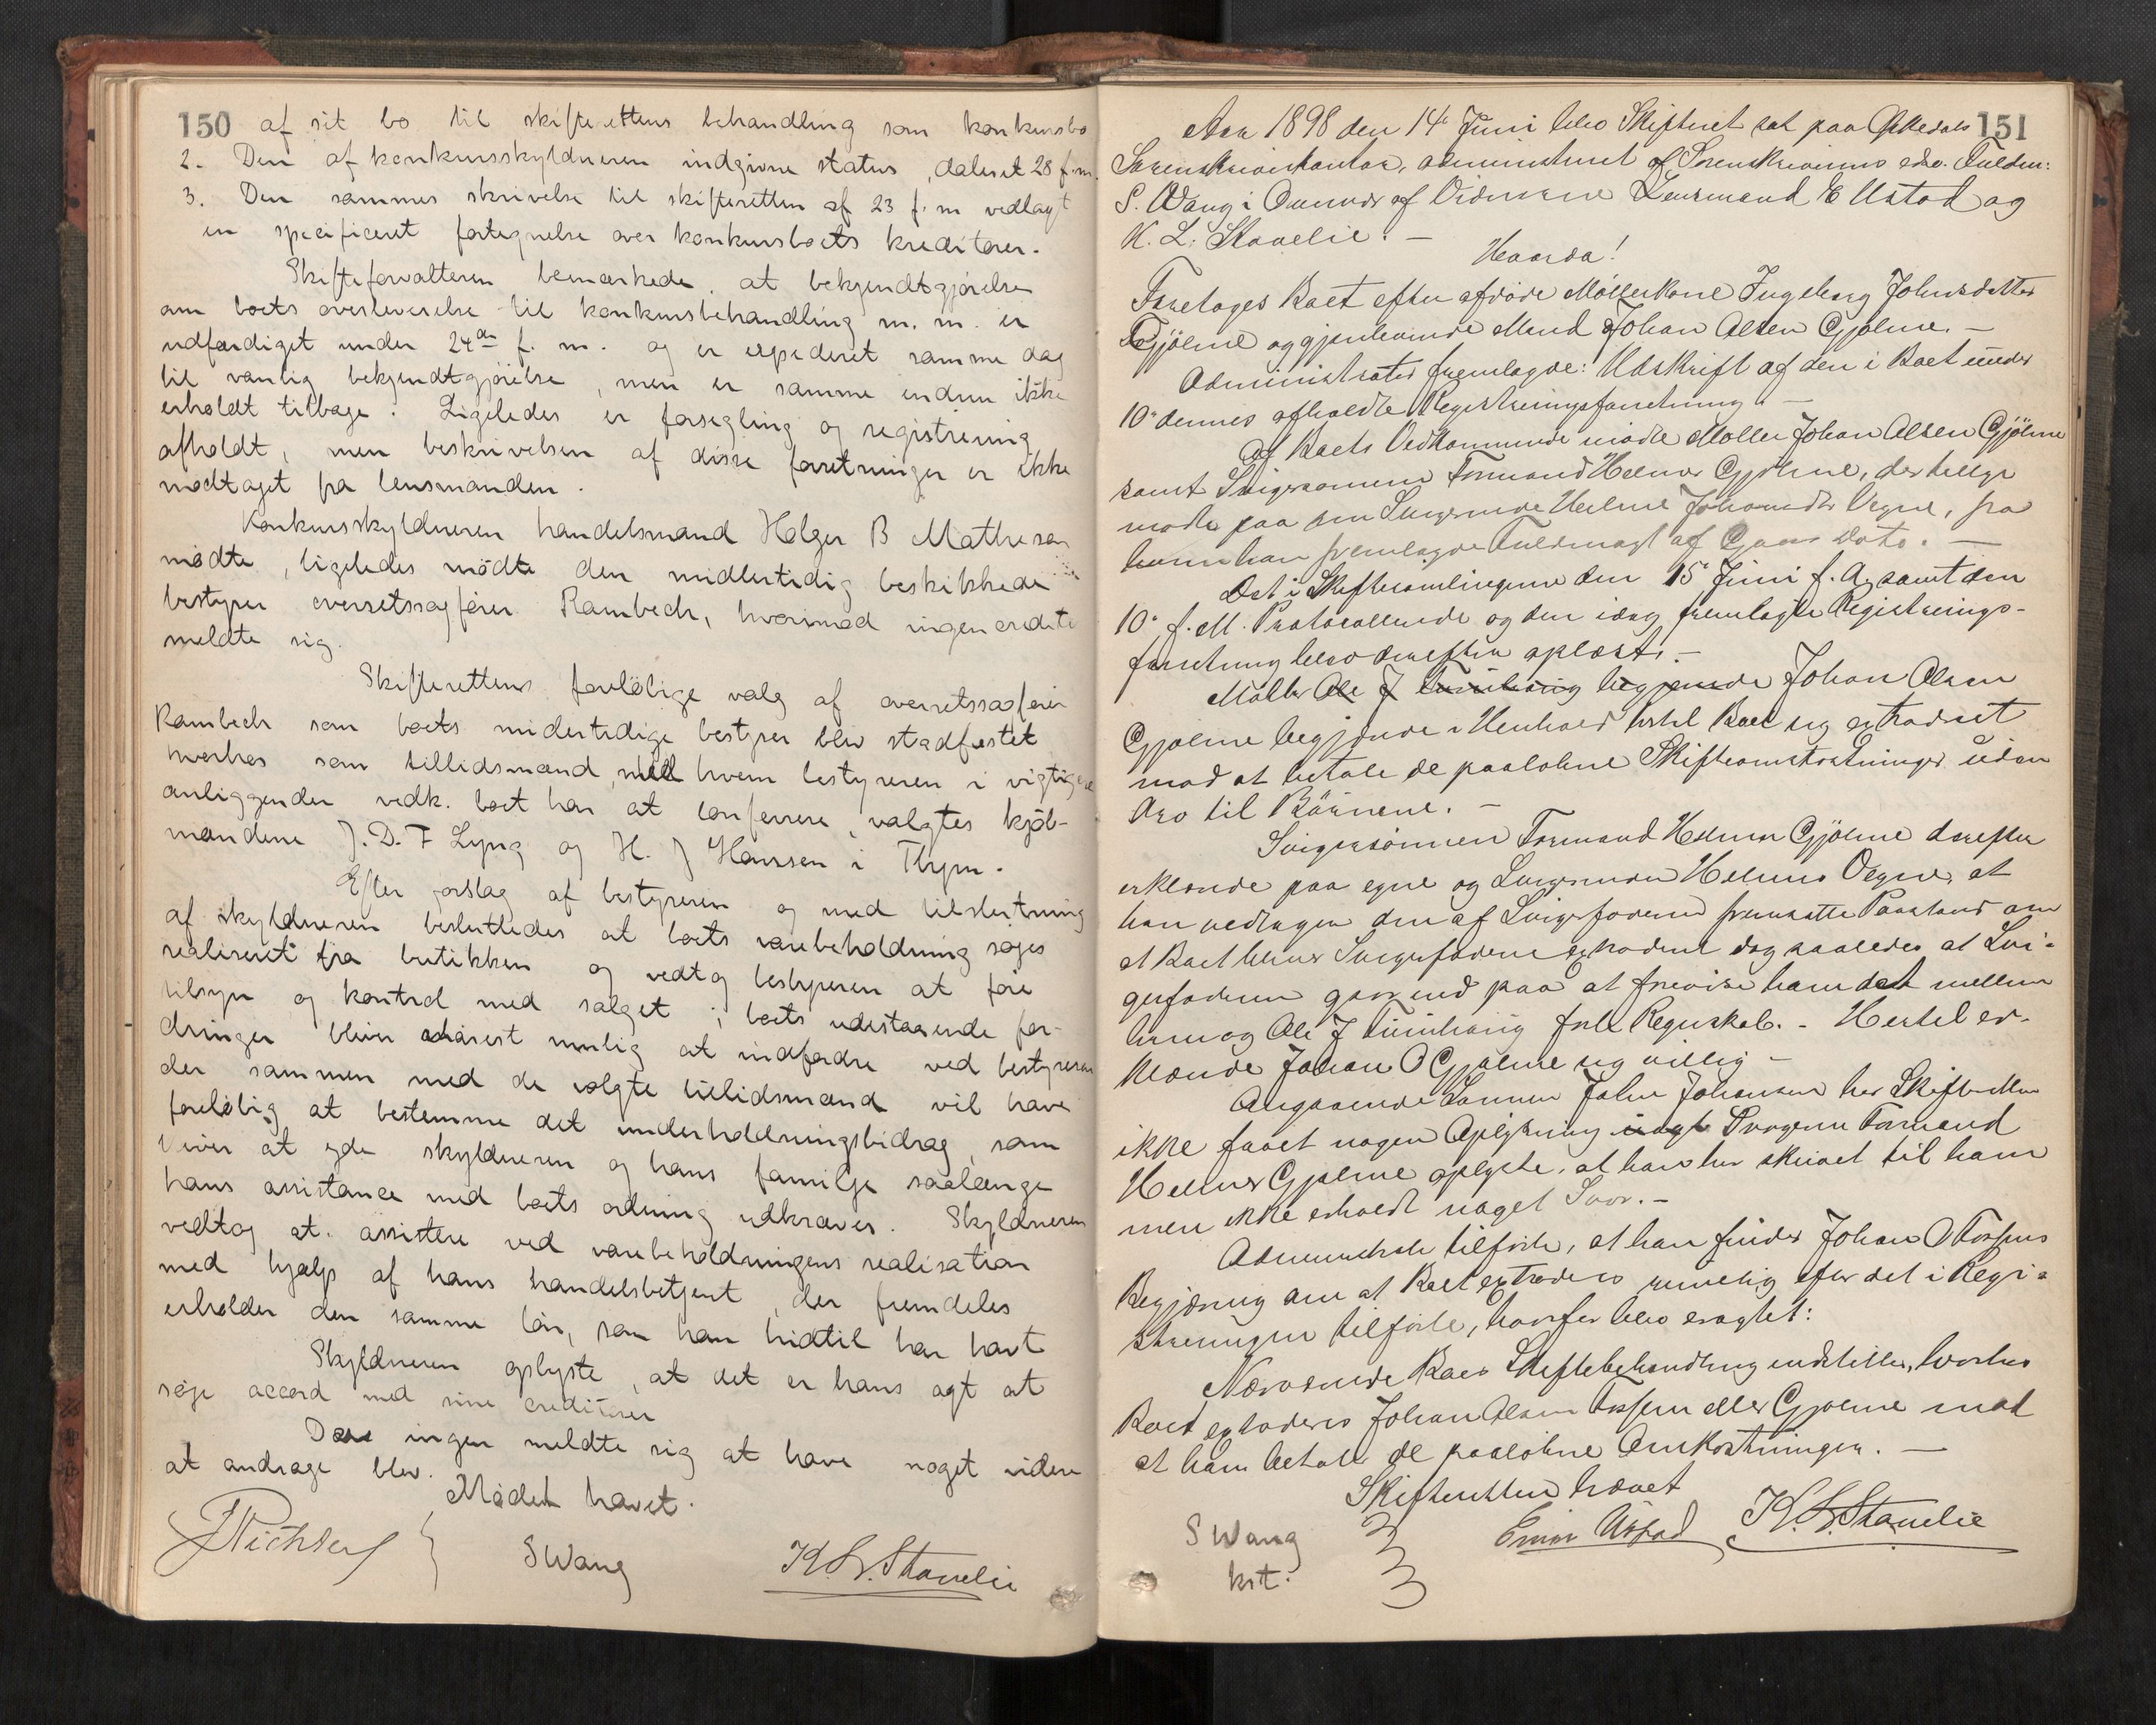 150
af sit bo til skifterettens behandling som konkursbo
2. Den af konkursskyldneren indgivne status, dateret 28 f. m.
3. Den sammes skrivelse til skifteretten af 23 f. m vedlagt
en specificeret fortegnelse over konkursboets kreditorer.
Skifteforvalteren bemærkede, at bekjendtgjørelse
om boets overleverelse til konkursbehandling m. m. er
udfærdiget under 24de f. m. og er expederet samme dag
til vanlig bekjendtgjørelse, men er samme endnu ikke
erholdt tilbage. Ligeledes er forsegling og registrering
afholdt, men beskrivelsen af disse forretninger er ikke
modtaget fra lensmanden.
Konkursskyldneren handelsmand Holger B Mathesen
mødte, ligeledes mødte den midlertidig beskikkede
bestyrer overretssagfører Rambech, hvorimod ingen credito
meldte sig.
Skifterettens foreløbige valg af overretssagfører
Rambech som boets midertidige bestyrer blev stadfæstet
hvorhos som tillidsmænd, med hvem bestyreren i vigtigere
anliggender vedk. boet har at conferere, valgtes kjøb-
mændene J. D. F Lyng og H. J Hanssen i Thjm.
Efter forslag af bestyreren og med tilslutning
af skyldneren besluttedes at boets varebeholdning søges
realiseret fra butikken og vedtog bestyreren at føre
tilsyn og kontrol med salget; boets udestaaende for-
dringer bliver snarest mulig at indfordre ved bestyreren
der sammen med de valgte tillidsmænd vil have
foreløbig at bestemme det underholdningsbidrag, som
bliver at yde skyldneren og hans familje saalænge
hans assistance med boets ordning udkræves. Skyldneren
vedtog at assistere ved varebeholdningens realisation
med hjælp af hans handelsbetjent, der fremdeles
erholder den samme løn, som han hidtil har havt
Skyldneren oplyste, at det er hans agt at
søge accord med sine creditorer
Da ingen meldte sig at have noget videre
at andrage blev
Mødet hævet.
J Richter
S Wang
K. L. Stavelie
151
Aar 1898 den 14de Juni blev Skifteret sat paa Orkedals
Sorenskriverkontor, administreret af Sorenskriverens edsv. Fuldm:
S. Wang i Overvær af Vidnerne Lensmand E Ustad og
K. L. Stavelie. —
Hvorda!
Foretages Boet efter afdøde Møllerkone Ingeborg Johnsdatter
Gjølme og gjenlevende Mand Johan Olsen Gjølme. —
Administrator fremlagde: Udskrift af den i Boet under
10de dennes afholdte Registreringsforretning. —
Af Boets Vedkommende mødte Møller Johan Olsen Gjølme
samt Svigersønnen Formand Helmer Gjølme, der tillige
mødte paa sin Svigerinde Heline Johansdtr Vegne, fra
hvem han fremlagde Fuldmagt af Gaars Dato. —
Det i Skiftesamlingerne den 15de Juni f. A. samt den
10de f. M. Protocollerede og den idag fremlagte Registrerings-
forretning blev derefter oplæst. —
Møller Ole J begjærede Johan Olsen
Gjølme begjærede i Henhold hertil Boet sig extraderet
mod at betale de paaløbne Skifteomkostninger uden
Arv til Børnene. —
Svigersønnen Formand Helmer Gjølme derefter
erklærede paa egne og Svigerinden Helines Vegne, at
han vedtager den af Svigerfaderen fremsatte Paastand om
at Boet bliver Svigerfaderen extraderet dog saaledes at Svi-
gerfaderen gaar ind paa at forevise ham det mellem
ham og Ole J førte Regnskab. - Hertil er-
klærede Johan O Gjølme sig villig —
Angaaende Sønnen John Johansen har Skifteretten
ikke faaet nogen Oplysning Svogeren Formand
Helmer Gjølme oplyste, at han har skrevet til ham
men ikke erholdt noget Svar. —
Administrator tilførte, at han finder Johan O Fossens
Begjæring om at Boet extraderes rimelig efter det i Regi-
streringen tilførte, hvorfor blev eragtet:
Nærværende Boes Skiftebehandling indstilles, hvorhos
Boet extraderes Johan Olsen Fossen eller Gjølme mod
at han betaler de paaløbne Omkostninger. —
Skifteretten hævet
S Wang
kst.
Einar Ustad
K. L. Stavelie